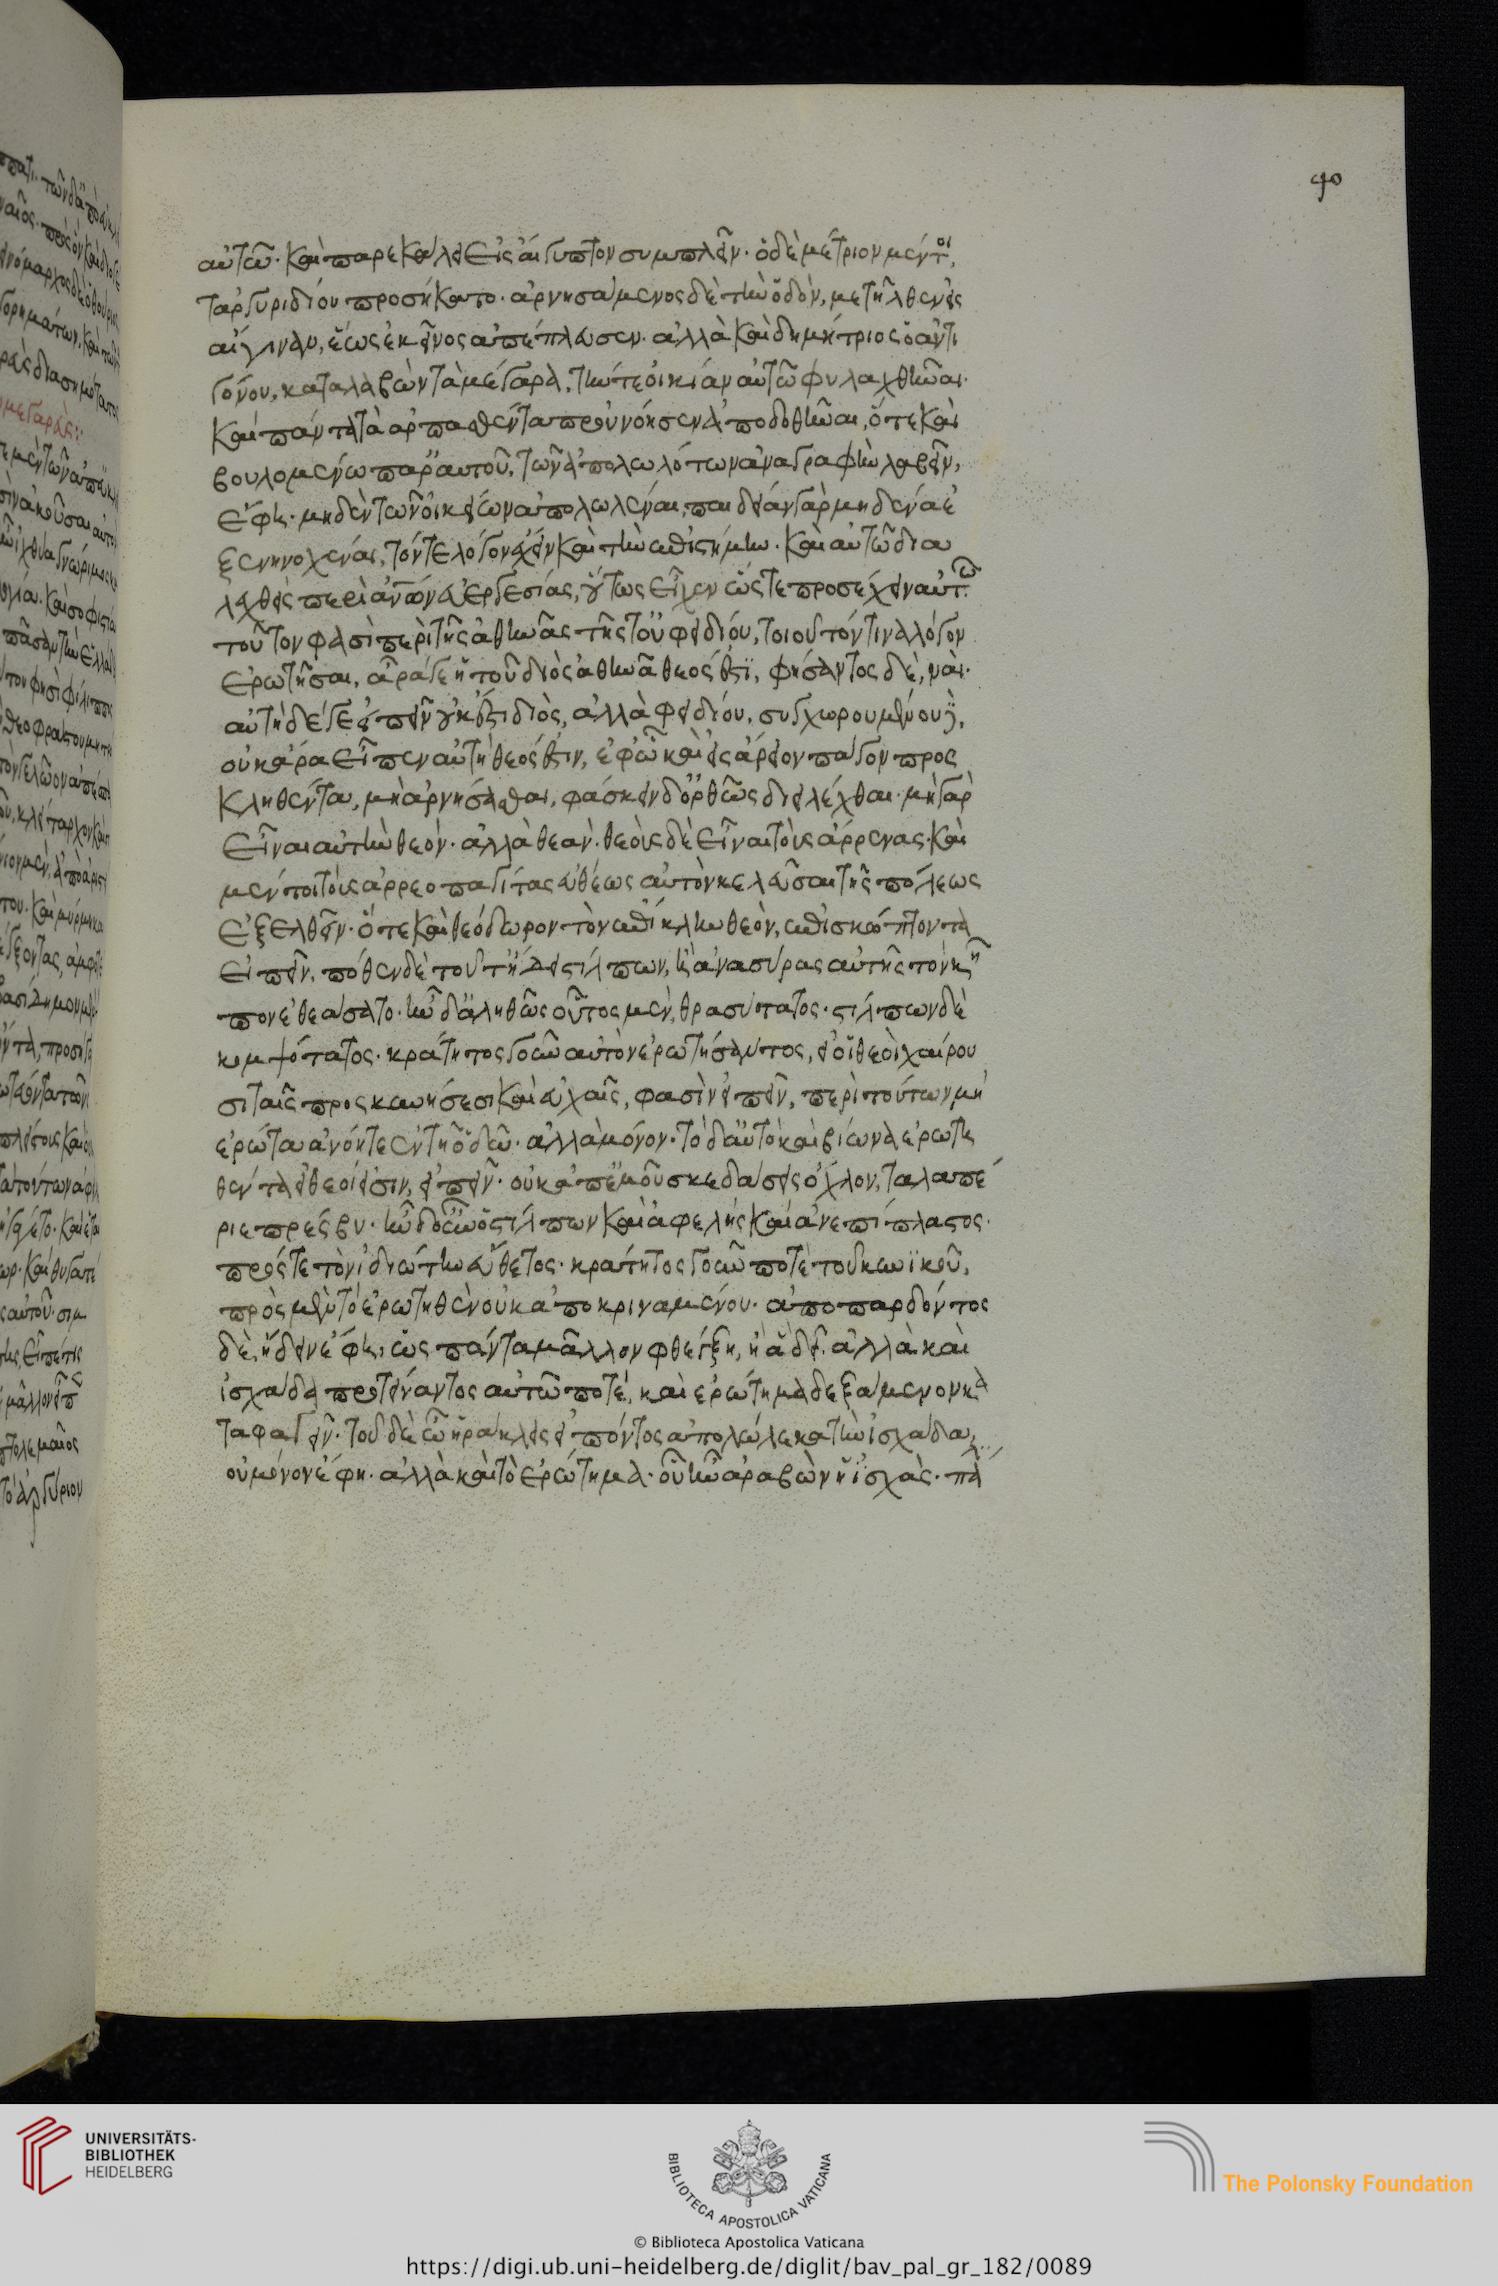 αὐτῶ· καὶ παρεκάλει εἰς αἴγυπτον συμπλεῖν· ὁ δὲ μέτριον μέν τοι
τἀργυριδίου προσήκατο· ἀρνησάμενος δὲ τὴν ὁδὸν, μετῆλθεν εἰς
αἴγιναν, ἕως ἐκεῖνος ἀπέπλευσεν· ἀλλὰ καὶ δημήτριος ὁ ἀντι
γόνου, καταλαβὼν τὰ μέγαρα, τήν τε οἰκίαν αὐτῶ φυλαχθῆναι·
καὶ πάντα τὰ ἁρπασθέντα προὐνόησεν ἀποδοθῆναι, ὅτε καὶ
βουλομένω παρ' αὐτοῦ, τῶν ἀπολωλότων ἀναγραφὴν λαβεῖν,
ἔφη· μηδὲν τῶν οἰκείων ἀπολωλέναι, παιδείαν γὰρ μηδένα ἐ
ξενηνοχέναι, τόν τε λόγον ἔχειν καὶ τὴν ἐπιστήμην· καὶ αὐτῶ δια
λεχθεὶς περὶ ἀνων εὐεργεσίας, οὕτως εἷλεν ὥστε προσέχειν αὐτῶ
τοῦτον φασὶ περὶ τῆς ἀθηνᾶς τῆς τοῦ φειδίου, τοιοῦτόν τινα λόγον
ἐρωτῆσαι, ἆρά γε ἡ τοῦ διὸς ἀθηνᾶ θεός ἐστϊ, φήσαντος δὲ, ναί·
αὐτὴ δέ γε εἰπεῖν οὐκ ἔστι διὸς, ἀλλὰ φειδίου, συγχωρουμένου δὲ,
οὐκ ἄρα εἶπεν αὐτὴ θεός ἐστιν, ἐφ' ὧ καὶ εἰς ἄρειον πάγον προς
κληθέντα, μὴ ἀρνήσασθαι, φάσκειν δ' ὀρθῶς διειλέχθαι· μὴ γὰρ
εἶναι αὐτὴν θεὸν· ἀλλὰ θεαν· θεοὺς δὲ εἶναι τοὺς ἄρρενας· καὶ
μέντοι τοὺς ἀρρεοπαγίτας εὐθέως αὐτὸν κελεῦσαι τῆς πόλεως
ἐξελθεῖν· ὅτε καὶ θεόδωρον τὸν ἐπίκλην θεὸν, ἐπισκώπτοντα
εἰπεῖν, πόθεν δὲ τοῦτ' ἤδει στίλπων, ἢ ἀνασύρας αὐτῆς τὸν κῆ
πον ἐθεάσατο· ἦν δ' ἀληθῶς οὗτος μὲν, θρασύτατος· στίλπων δὲ
κομψότατος· κράτητος γοῦν αὐτὸν ἐρωτήσαντος, εἰ οἱ θεοὶ χαίρου
σι ταῖς προσκυνήσεσι καὶ εὐχαῖς, φασὶν εἰπεῖν, περὶ τούτων μὴ
ἐρώτα ἀνόητε ἐν τῆ ὁδῶ· ἀλλὰ μόνον· τὸ δ' αὐτὸ καὶ βίωνα ἐρωτη
θέντα εἰ θεοί εἰσιν, εἰπεῖν· οὐκ ἀπ' ἐμοῦ σκεδάσεις ὄχλον, ταλαπεί
ριε πρέσβυ· ἦν δ' οὖν ὁ στίλπων καὶ ἀφελὴς καὶ ἀνεπίπλαστος·
πρός τε τὸν ἰδιώτην εὔθετος· κράτητος γοῦν ποτὲ τοῦ κυνϊκοῦ,
πρὸς μὲν τὸ ἐρωτηθὲν οὐκ ἀποκριναμένου· ἀποπαρδόντος
δὲ, ἤδειν ἔφη, ὡς πάντα μᾶλλον φθέγξη, ἢ ἃ δεῖ. ἀλλὰ καὶ
ἰσχάδα προτείναντος αὐτῶ ποτέ, καὶ ἐρώτημα δεξάμενον κα
ταφαγεῖν· τοῦ δὲ ὦ ἡράκλεις εἰπόντος ἀπολώλεκα τὴν ἰσχάδα,
οὐ μόνον ἔφη· ἀλλὰ καὶ τὸ ἐρώτημα· οὗ ἦν ἀραβὼν ἡ ἰσχὰς· πά
UNIVERSITÄTS-
BIBLIOTHEK
HEIDELBERG
BIBLIOTECA APOSTOLICA VATICANA
The Polonsky Foundation
© Biblioteca Apostolica Vaticana
https://digi.ub.uni-heidelberg.de/diglit/bav_pal_gr_182/0089